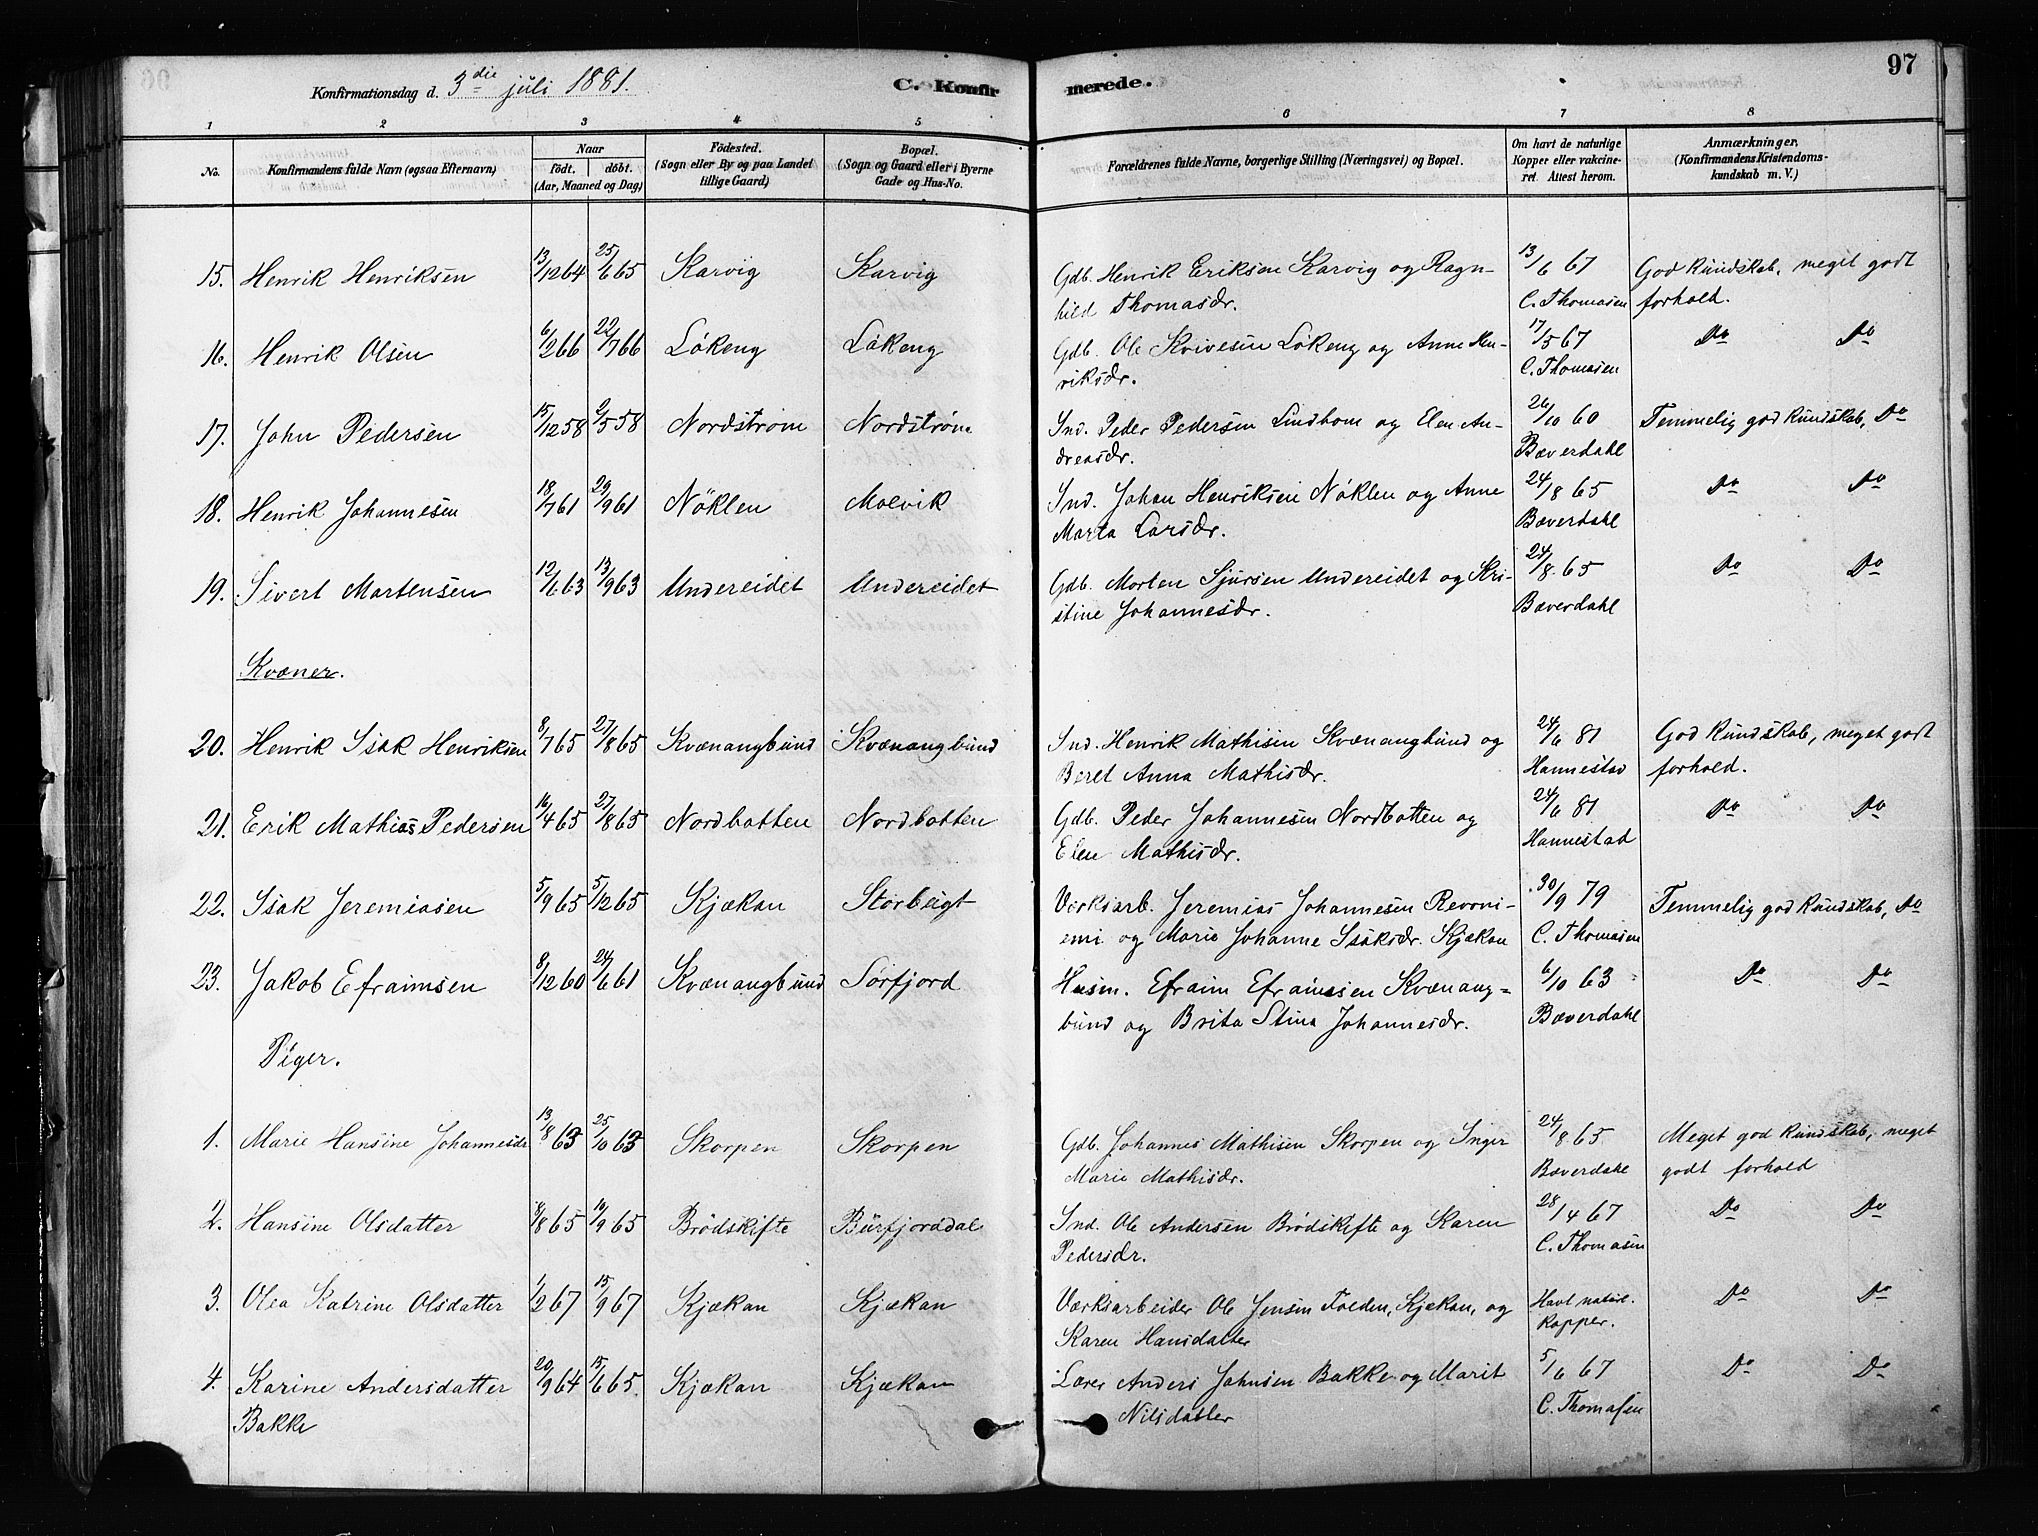 Konfirmationsdag d. 3die juli 1881.
C. Konfir
merede.
97
1 2 3 4 5 6 7 8
No. Konfirmandens fulde Navn (ogsaa Efternavn) Naar født. døbt. (Aar, Maaned og Dag) Födested. (Sogn eller By og paa Landet tillige Gaard) Bopæl. (Sogn og Gaard eller i Byerne Gade og Hus-No. Forældrenes fulde Navne, borgerlige Stilling (Næringsvei) og Bopæl. Om havt de naturlige Kopper eller vakcineret. Attest herom. Anmærkninger. (Konfirmandens Kristendomskundskab m. V.)
15. Henrik Henriksen 13/12 64 25/6 65 Karvig Karvig Gdb. Henrik Eriksen Karvig og Ragn- 13/6 67 God kundskab, meget godt
hild Thomasdr. C. Thomasen forhold.
16. Henrik Olsen 6/2 66 22/7 66 Løkeng Løkeng Gdb. Ole Skivesen Løkeng og Anne Hen- 17/5 67 Do Do
riksdr. C. Thomasen
17. John Pedersen 15/12 58 2/5 58 Nordstrøm Nordstrøm Ind. Peder Pedersen Lindbom og Elen An- 26/10 60 Temmelig god kundskab, Do
dreasdr. Bæverdahl
18. Henrik Johannesen 18/7 61 29/9 61 Nöklen Molvik Ind. Johan Henriksen Nøklen og Anne 24/8 65 Do Do
Marta Larsdr. Bæverdahl
19. Sivert Mortensen 12/1 63 13/9 63 Undereidet Undereidet Gdb. Morten Sjursen Undereidet og Kri- 24/8 65 Do Do
stine Johannesdr. Bæverdahl
Kvæner.
20. Henrik Isak Henriksen 8/7 65 27/8 65 Kvænangbund Kvænangbund Ind. Henrik Mathisen Kvænangbund og 24/6 81 God kundskab, meget godt
Beret Anna Mathisdr. Hannestad forhold.
21. Erik Mathias Pedersen 16/4 65 27/8 65 Nordbotten Nordbotten Gdb. Peder Johannesen Nordbotten og 24/6 81 Do Do
Elen Mathisdr. Hannestad
22. Isak Jeremiasen 5/9 65 5/12 65 Kjækan Storbugt Verksarb. Jeremias Johannesen Revoni- 30/9 79 Temmelig god kundskab, Do
emi og Marie Johanne Isaksdr. Kjækan C. Thomasen
23. Jakob Efraimsen 8/12 60 24/6 61 Kvænangbund Sørfjord Husm. Efraim Efraimsen Kvænang- 6/10 63 Do Do
bund og Brita Stina Johannesdr. Bæverdahl
Piger.
1. Marie Hansine Johannesdr 13/8 63 25/10 63 Skorpen Skorpen Gdb. Johannes Mathisen Skorpen og Inger 24/8 65 Meget god kundskab, meget
Marie Mathisdr. Bæverdahl godt forhold
2. Hansine Olsdatter 8/8 65 10/9 65 Brødskifte Burfjorddal Ind. Ole Andersen Brødskifte og Karen 28/4 67 Do Do
Pedersdr. C. Thomasen
3. Olea Katrine Olsdatter 1/2 67 15/9 67 Kjækan Kjækan Værksarbeider Ole Jensen Folden, Kjækan, og Havt natûrl. Do Do
Karen Hansdatter Kopper.
4. Karine Andersdatter 20/9 64 15/6 65. Kjækan Kjækan Lærer Anders Johnsen Bakke og Marit 5/6 67 Do Do
Bakke Nilsdatter C. Thomasen